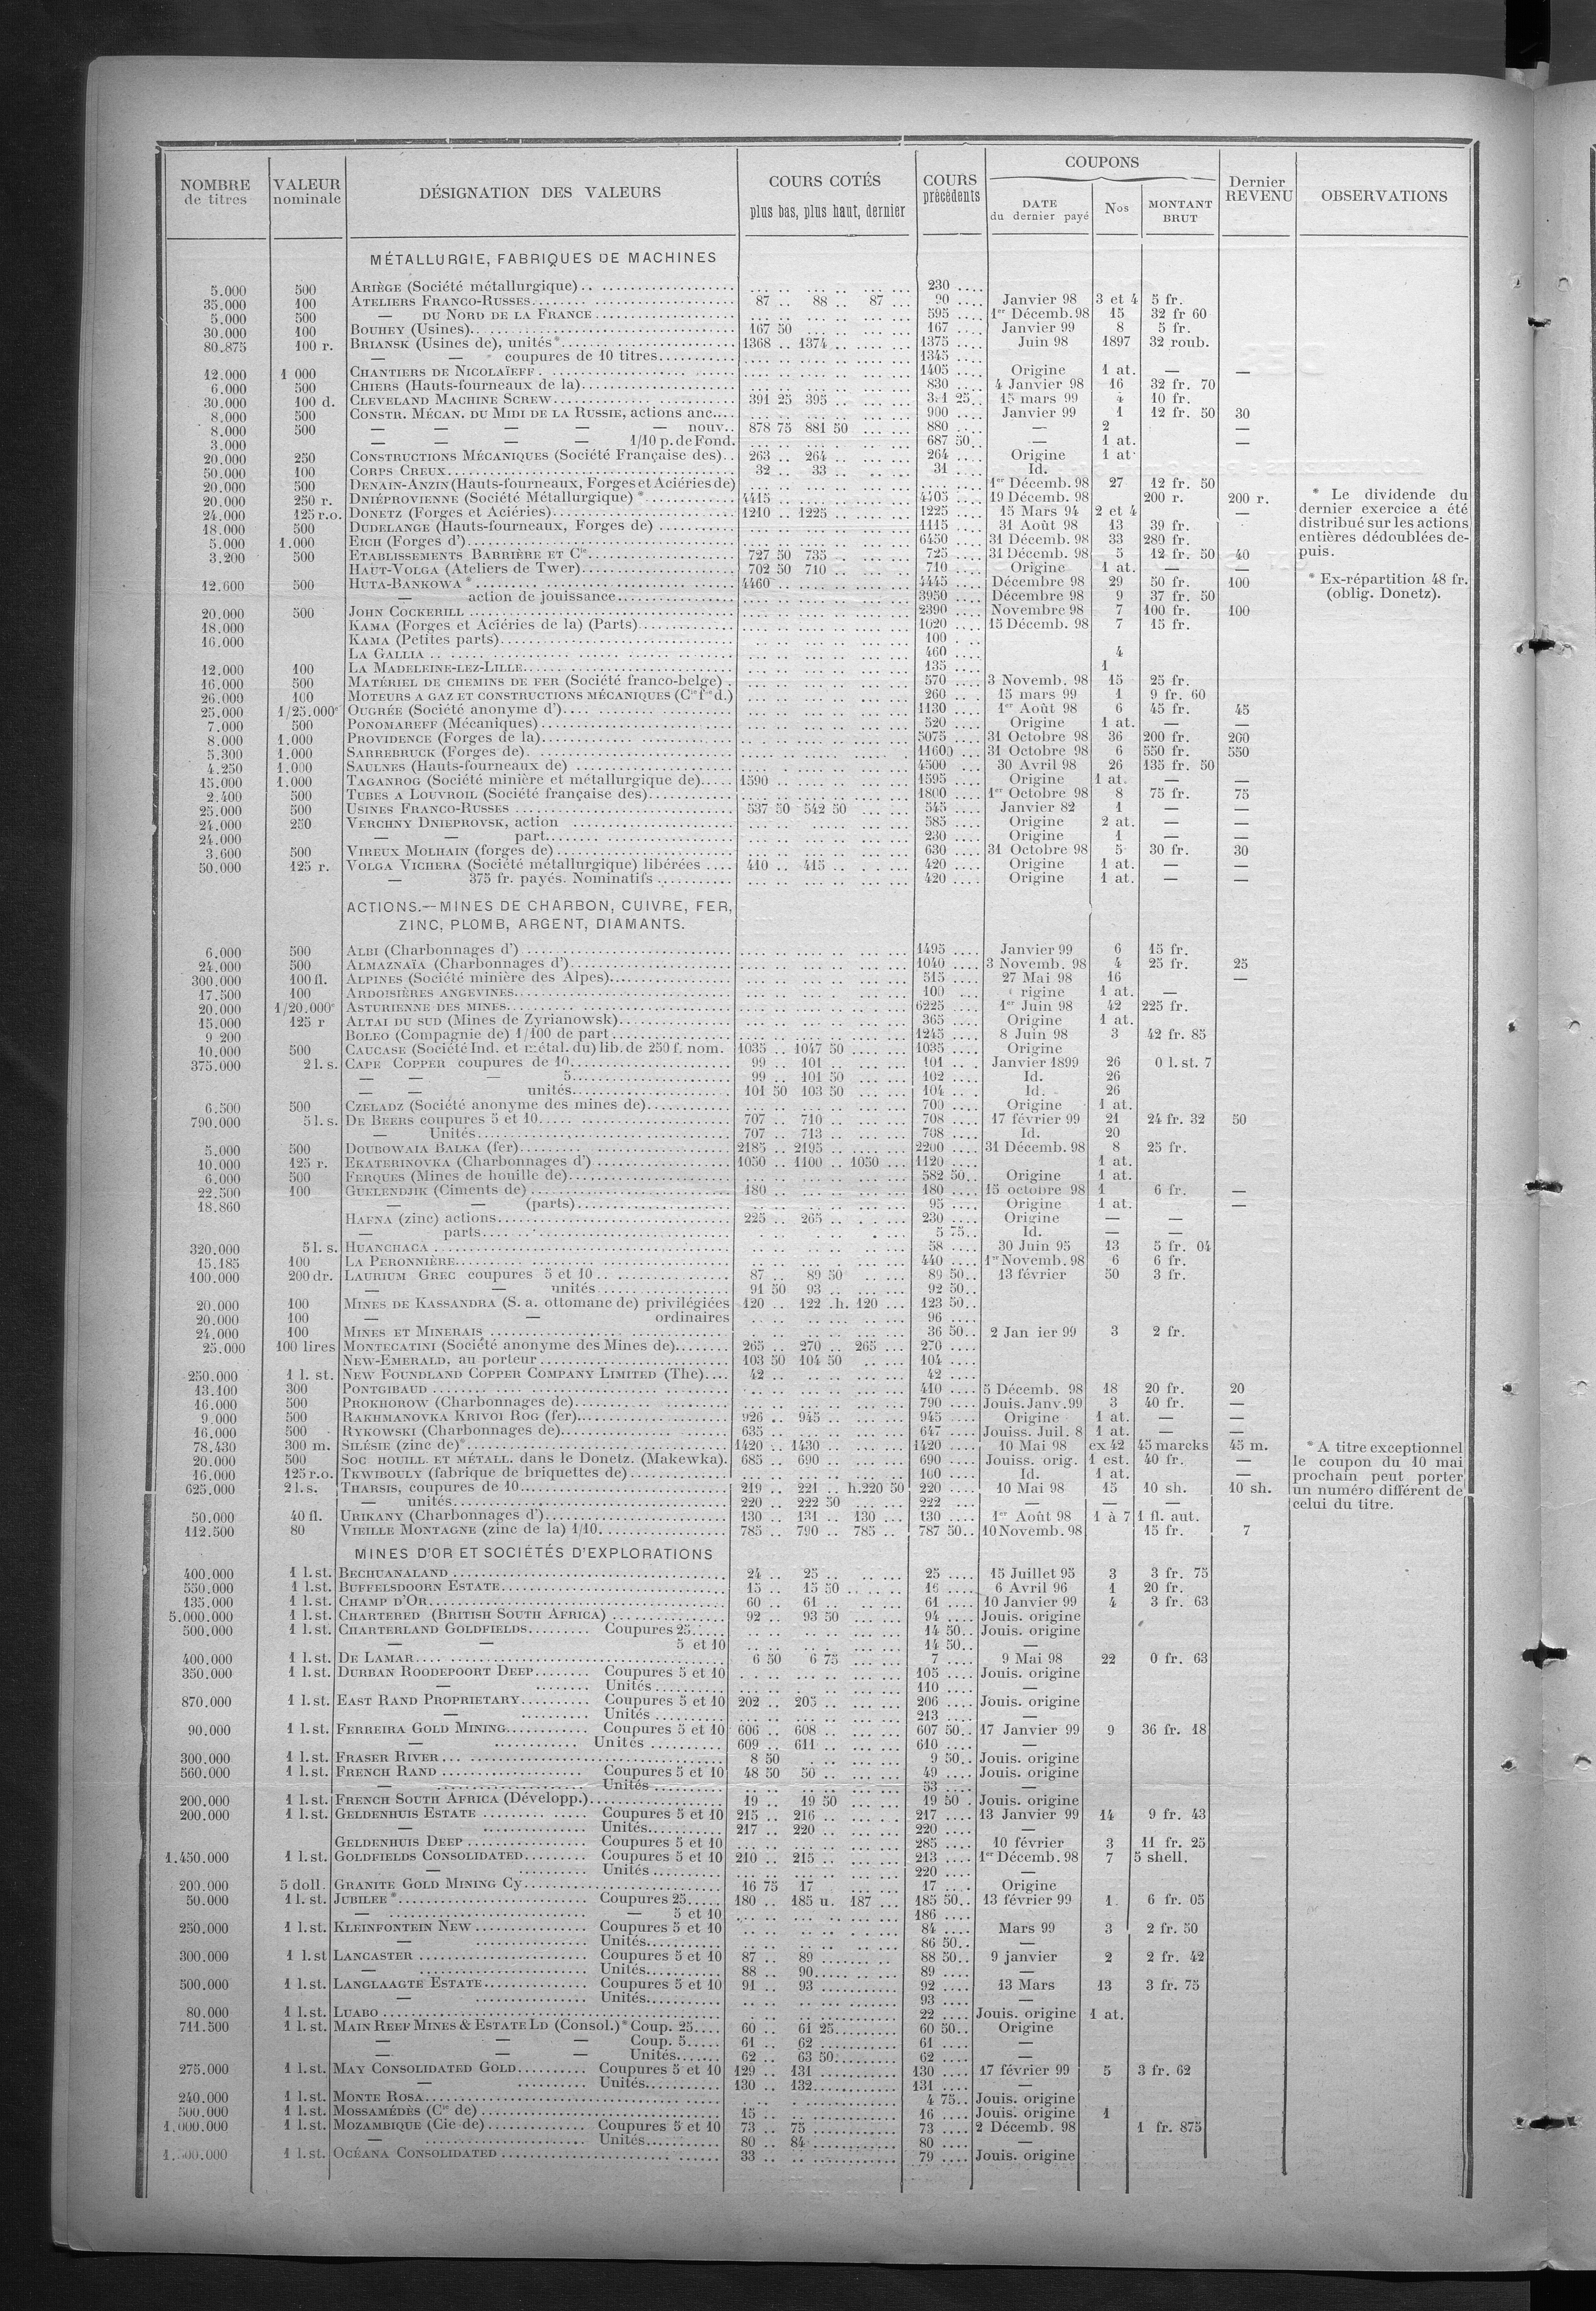 NOMBRE de titres | VALEUR nominale | DÉSIGNATION DES VALEURS | COURS COTÉS plus bas, plus haut, dernier | COURS précédents | COUPONS DATE du dernier payé | Nos | MONTANT BRUT | Dernier REVENU | OBSERVATIONS
MÉTALLURGIE, FABRIQUES DE MACHINES
5.000 500 ARIÈGE (Société métallurgique) 230
35.000 100 ATELIERS FRANCO-RUSSES 87 88 87 90 Janvier 98 3 et 4 5 fr.
5.000 500 — DU NORD DE LA FRANCE 595 1er Décemb. 98 15 32 fr 60
30.000 100 BOUHEY (Usines) 167 50 167 Janvier 99 8 5 fr.
80.875 100 r. BRIANSK (Usines de), unités* 1368 1374 1375 Juin 98 1897 32 roub.
— — coupures de 10 titres 1345
12.000 1 000 CHANTIERS DE NICOLAÏEFF 1405 Origine 1 at. — —
6.000 500 CHIERS (Hauts-fourneaux de la) 830 4 Janvier 98 16 32 fr. 70
30.000 100 d. CLEVELAND MACHINE SCREW 391 25 395 25 15 mars 99 4 10 fr.
8.000 500 CONSTR. MÉCAN. DU MIDI DE LA RUSSIE, actions anc. 900 Janvier 99 1 12 fr. 50 30
8.000 500 — — — — — nouv. 878 75 881 50 880 — 2 —
3.000 — — — — 1/10 p. de Fond. 687 50 — 1 at. —
20.000 250 CONSTRUCTIONS MÉCANIQUES (Société Française des) 263 264 264 Origine 1 at.
50.000 100 CORPS CREUX 32 33 31 Id.
20.000 500 DENAIN-ANZIN (Hauts-fourneaux, Forges et Aciéries de) 1er Décemb. 98 27 12 fr. 50
20.000 250 r. DNIÉPROVIENNE (Société Métallurgique) * 4415 4405 19 Décemb. 98 200 r. 200 r.
24.000 125 r.o. DONETZ (Forges et Aciéries) 1210 1225 1225 15 Mars 94 2 et 4 —
18.000 500 DUDELANGE (Hauts-fourneaux, Forges de) 1115 31 Août 98 13 39 fr.
5.000 1.000 EICH (Forges d') 6450 31 Décemb. 98 33 289 fr.
3.200 500 ETABLISSEMENTS BARRIÈRE ET Cie 727 50 735 725 31 Décemb. 98 5 12 fr. 50 40
HAUT-VOLGA (Ateliers de Twer) 702 50 710 710 Origine 1 at. — —
12.600 500 HUTA-BANKOWA * 4460 4445 Décembre 98 29 50 fr. 100
— action de jouissance 3950 Décembre 98 9 37 fr. 50
20.000 500 JOHN COCKERILL 2390 Novembre 98 7 100 fr. 100
18.000 KAMA (Forges et Aciéries de la) (Parts) 1020 15 Décemb. 98 7 15 fr.
16.000 KAMA (Petites parts) 100
LA GALLIA 460 4
12.000 100 LA MADELEINE-LEZ-LILLE 135 1
16.000 500 MATÉRIEL DE CHEMINS DE FER (Société franco-belge) 570 3 Novemb. 98 15 25 fr.
26.000 100 MOTEURS A GAZ ET CONSTRUCTIONS MÉCANIQUES (Cie fse d.) 260 15 mars 99 1 9 fr. 60
25.000 1/25.000e OUGRÉE (Société anonyme d') 1130 1er Août 98 6 45 fr. 45
7.000 500 PONOMAREFF (Mécaniques) 520 Origine 1 at. — —
8.000 1.000 PROVIDENCE (Forges de la) 5075 31 Octobre 98 36 200 fr. 200
5.300 1.000 SARREBRUCK (Forges de) 11600 31 Octobre 98 6 550 fr. 550
4.250 1.000 SAULNES (Hauts-fourneaux de) 4500 30 Avril 98 26 135 fr. 50
15.000 1.000 TAGANROG (Société minière et métallurgique de) 1590 1595 Origine 1 at. — —
2.400 500 TUBES A LOUVROIL (Société française des) 1800 1er Octobre 98 8 75 fr. 75
25.000 500 USINES FRANCO-RUSSES 537 50 542 50 545 Janvier 82 1 — —
24.000 250 VERCHNY DNIEPROVSK, action 585 Origine 2 at. — —
24.000 — — part 230 Origine 1 — —
3.600 500 VIREUX MOLHAIN (forges de) 630 31 Octobre 98 5 30 fr. 30
50.000 125 r. VOLGA VICHERA (Société métallurgique) libérées 410 415 420 Origine 1 at. — —
— 375 fr. payés. Nominatifs 420 Origine 1 at. — —
* Le dividende du
dernier exercice a été
distribué sur les actions
entières dédoublées de-
puis.
* Ex-répartition 48 fr.
(oblig. Donetz).
ACTIONS.— MINES DE CHARBON, CUIVRE, FER,
ZINC, PLOMB, ARGENT, DIAMANTS.
6.000 500 ALBI (Charbonnages d') 1495 Janvier 99 6 15 fr.
24.000 500 ALMAZNAÏA (Charbonnages d') 1040 3 Novemb. 98 4 25 fr. 25
300.000 100 fl. ALPINES (Société minière des Alpes) 515 27 Mai 98 16 —
17.500 100 ARDOISIÈRES ANGEVINES 100 rigine 1 at. —
20.000 1/20.000e ASTURIENNE DES MINES 6225 1er Juin 98 42 225 fr.
15.000 125 r ALTAI DU SUD (Mines de Zyrianowsk) 365 Origine 1 at.
9 200 BOLEO (Compagnie de) 1/100 de part 1245 8 Juin 98 3 42 fr. 85
10.000 500 CAUCASE (Société Ind. et métal. du) lib. de 250 f. nom. 1035 1047 50 1035 Origine
375.000 2 l. s. CAPE COPPER coupures de 10 99 101 101 Janvier 1899 26 0 l. st. 7
— — — 5 99 101 50 102 Id. 26
— — unités 101 50 103 50 104 Id. 26
6.500 500 CZELADZ (Société anonyme des mines de) 700 Origine 1 at.
790.000 5 l. s. DE BEERS coupures 5 et 10 707 710 708 17 février 99 21 24 fr. 32 50
— Unités 707 713 708 Id. 20
5.000 500 DOUBOWAIA BALKA (fer) 2185 2195 2200 31 Décemb. 98 8 25 fr.
10.000 125 r. EKATERINOVKA (Charbonnages d') 1050 1100 1050 1120 1 at.
6.000 500 FERQUES (Mines de houille de) 582 50 Origine 1 at.
22.500 100 GUELENDJIK (Ciments de) 180 180 15 octobre 98 1 6 fr. —
18.860 — — (parts) 95 Origine 1 at. —
HAFNA (zinc) actions 225 265 230 Origine — —
— parts 5 75 Id. — —
320.000 5 l. s. HUANCHACA 58 30 Juin 95 13 5 fr. 04
15.185 100 LA PERONNIÈRE 440 1er Novemb. 98 6 6 fr.
100.000 200 dr. LAURIUM GREC coupures 5 et 10 87 89 50 89 50 13 février 50 3 fr.
— — unités 91 50 93 92 50
20.000 100 MINES DE KASSANDRA (S. a. ottomane de) privilégiées 120 122 .h. 120 123 50
20.000 100 — — ordinaires 96
24.000 100 MINES ET MINERAIS 36 50 2 Jan ier 99 3 2 fr.
25.000 100 lires MONTECATINI (Société anonyme des Mines de) 265 270 265 270
NEW-EMERALD, au porteur 103 50 104 50 104
250.000 1 l. st. NEW FOUNDLAND COPPER COMPANY LIMITED (The) 42 42
13.100 300 PONTGIBAUD 410 5 Décemb. 98 18 20 fr. 20
16.000 500 PROKHOROW (Charbonnages de) 790 Jouis. Janv. 99 3 40 fr. —
9.000 500 RAKHMANOVKA KRIVOI ROG (fer) 926 945 945 Origine 1 at. — —
16.000 500 RYKOWSKI (Charbonnages de) 635 647 Jouiss. Juil. 8 1 at. — —
78.430 300 m. SILÉSIE (zinc de)* 1420 1430 1420 10 Mai 98 ex 42 45 marcks 45 m.
20.000 500 SOC HOUILL. ET MÉTALL. dans le Donetz. (Makewka) 685 690 690 Jouiss. orig. 1 est. 40 fr. —
16.000 125 r.o. TKWIBOULY (fabrique de briquettes de) 100 Id. 1 at. —
625.000 2 l. s. THARSIS, coupures de 10 219 221 h.220 50 220 10 Mai 98 15 10 sh. 10 sh.
— unités 220 222 50 222 — — —
50.000 40 fl. URIKANY (Charbonnages d') 130 131 130 130 1er Août 98 1 à 7 1 fl. aut.
112.500 80 VIEILLE MONTAGNE (zinc de la) 1/10 785 790 785 787 50 10 Novemb. 98 15 fr. 7
* A titre exceptionnel
le coupon du 10 mai
prochain peut porter
un numéro différent de
celui du titre.
MINES D'OR ET SOCIÉTÉS D'EXPLORATIONS
400.000 1 l. st. BECHUANALAND 24 25 25 15 Juillet 95 3 3 fr. 75
550.000 1 l. st. BUFFELSDOORN ESTATE 15 15 50 16 6 Avril 96 1 20 fr.
135.000 1 l. st. CHAMP D'OR 60 61 61 10 Janvier 99 4 3 fr. 63
5.000.000 1 l. st. CHARTERED (BRITISH SOUTH AFRICA) 92 93 50 94 Jouis. origine
500.000 1 l. st. CHARTERLAND GOLDFIELDS Coupures 25 14 50 Jouis. origine
— — 5 et 10 14 50 —
400.000 1 l. st. DE LAMAR 6 50 6 75 7 9 Mai 98 22 0 fr. 63
350.000 1 l. st. DURBAN ROODEPOORT DEEP Coupures 5 et 10 105 Jouis. origine
— Unités 110 —
870.000 1 l. st. EAST RAND PROPRIETARY Coupures 5 et 10 202 205 206 Jouis. origine
— Unités 213 —
90.000 1 l. st. FERREIRA GOLD MINING Coupures 5 et 10 606 608 607 50 17 Janvier 99 9 36 fr. 18
— Unités 609 611 610 —
300.000 1 l. st. FRASER RIVER 8 50 9 50 Jouis. origine
560.000 1 l. st. FRENCH RAND Coupures 5 et 10 48 50 50 49 Jouis. origine
— Unités 53 —
200.000 1 l. st. FRENCH SOUTH AFRICA (Développ.) 19 19 50 19 50 Jouis. origine
200.000 1 l. st. GELDENHUIS ESTATE Coupures 5 et 10 215 216 217 13 Janvier 99 14 9 fr. 43
— Unités 217 220 220 —
GELDENHUIS DEEP Coupures 5 et 10 285 10 février 3 11 fr. 25
1.450.000 1 l. st. GOLDFIELDS CONSOLIDATED Coupures 5 et 10 210 215 213 1er Décemb. 98 7 5 shell.
— Unités 220 —
200.000 5 doll. GRANITE GOLD MINING Cy 16 75 17 17 Origine
50.000 1 l. st. JUBILEE * Coupures 25 180 185 u. 187 185 50 13 février 99 1 6 fr. 05
— — 5 et 10 186
250.000 1 l. st. KLEINFONTEIN NEW Coupures 5 et 10 84 Mars 99 3 2 fr. 50
— Unités 86 50 —
300.000 1 l. st LANCASTER Coupures 5 et 10 87 89 88 50 9 janvier 2 2 fr. 42
— Unités 88 90 89 —
500.000 1 l. st. LANGLAAGTE ESTATE Coupures 5 et 10 91 93 92 13 Mars 13 3 fr. 75
— Unités 93 —
80.000 1 l. st. LUABO 22 Jouis. origine 1 at.
711.500 1 l. st. MAIN REEF MINES & ESTATE LD (Consol.)* Coup. 25 60 61 25 60 50 Origine
— — — Coup. 5 61 62 61 —
— — — Unités 62 63 50 62 —
275.000 1 l. st. MAY CONSOLIDATED GOLD Coupures 5 et 10 129 131 130 17 février 99 5 3 fr. 62
— Unités 130 132 131 —
240.000 1 l. st. MONTE ROSA 4 75 Jouis. origine
500.000 1 l. st. MOSSAMÉDÈS (Cie de) 15 16 Jouis. origine 1
1.000.000 1 l. st. MOZAMBIQUE (Cie de) Coupures 5 et 10 73 75 73 2 Décemb. 98 1 fr. 875
— Unités 80 84 80 —
1 l. st. OCÉANA CONSOLIDATED 33 79 Jouis. origine